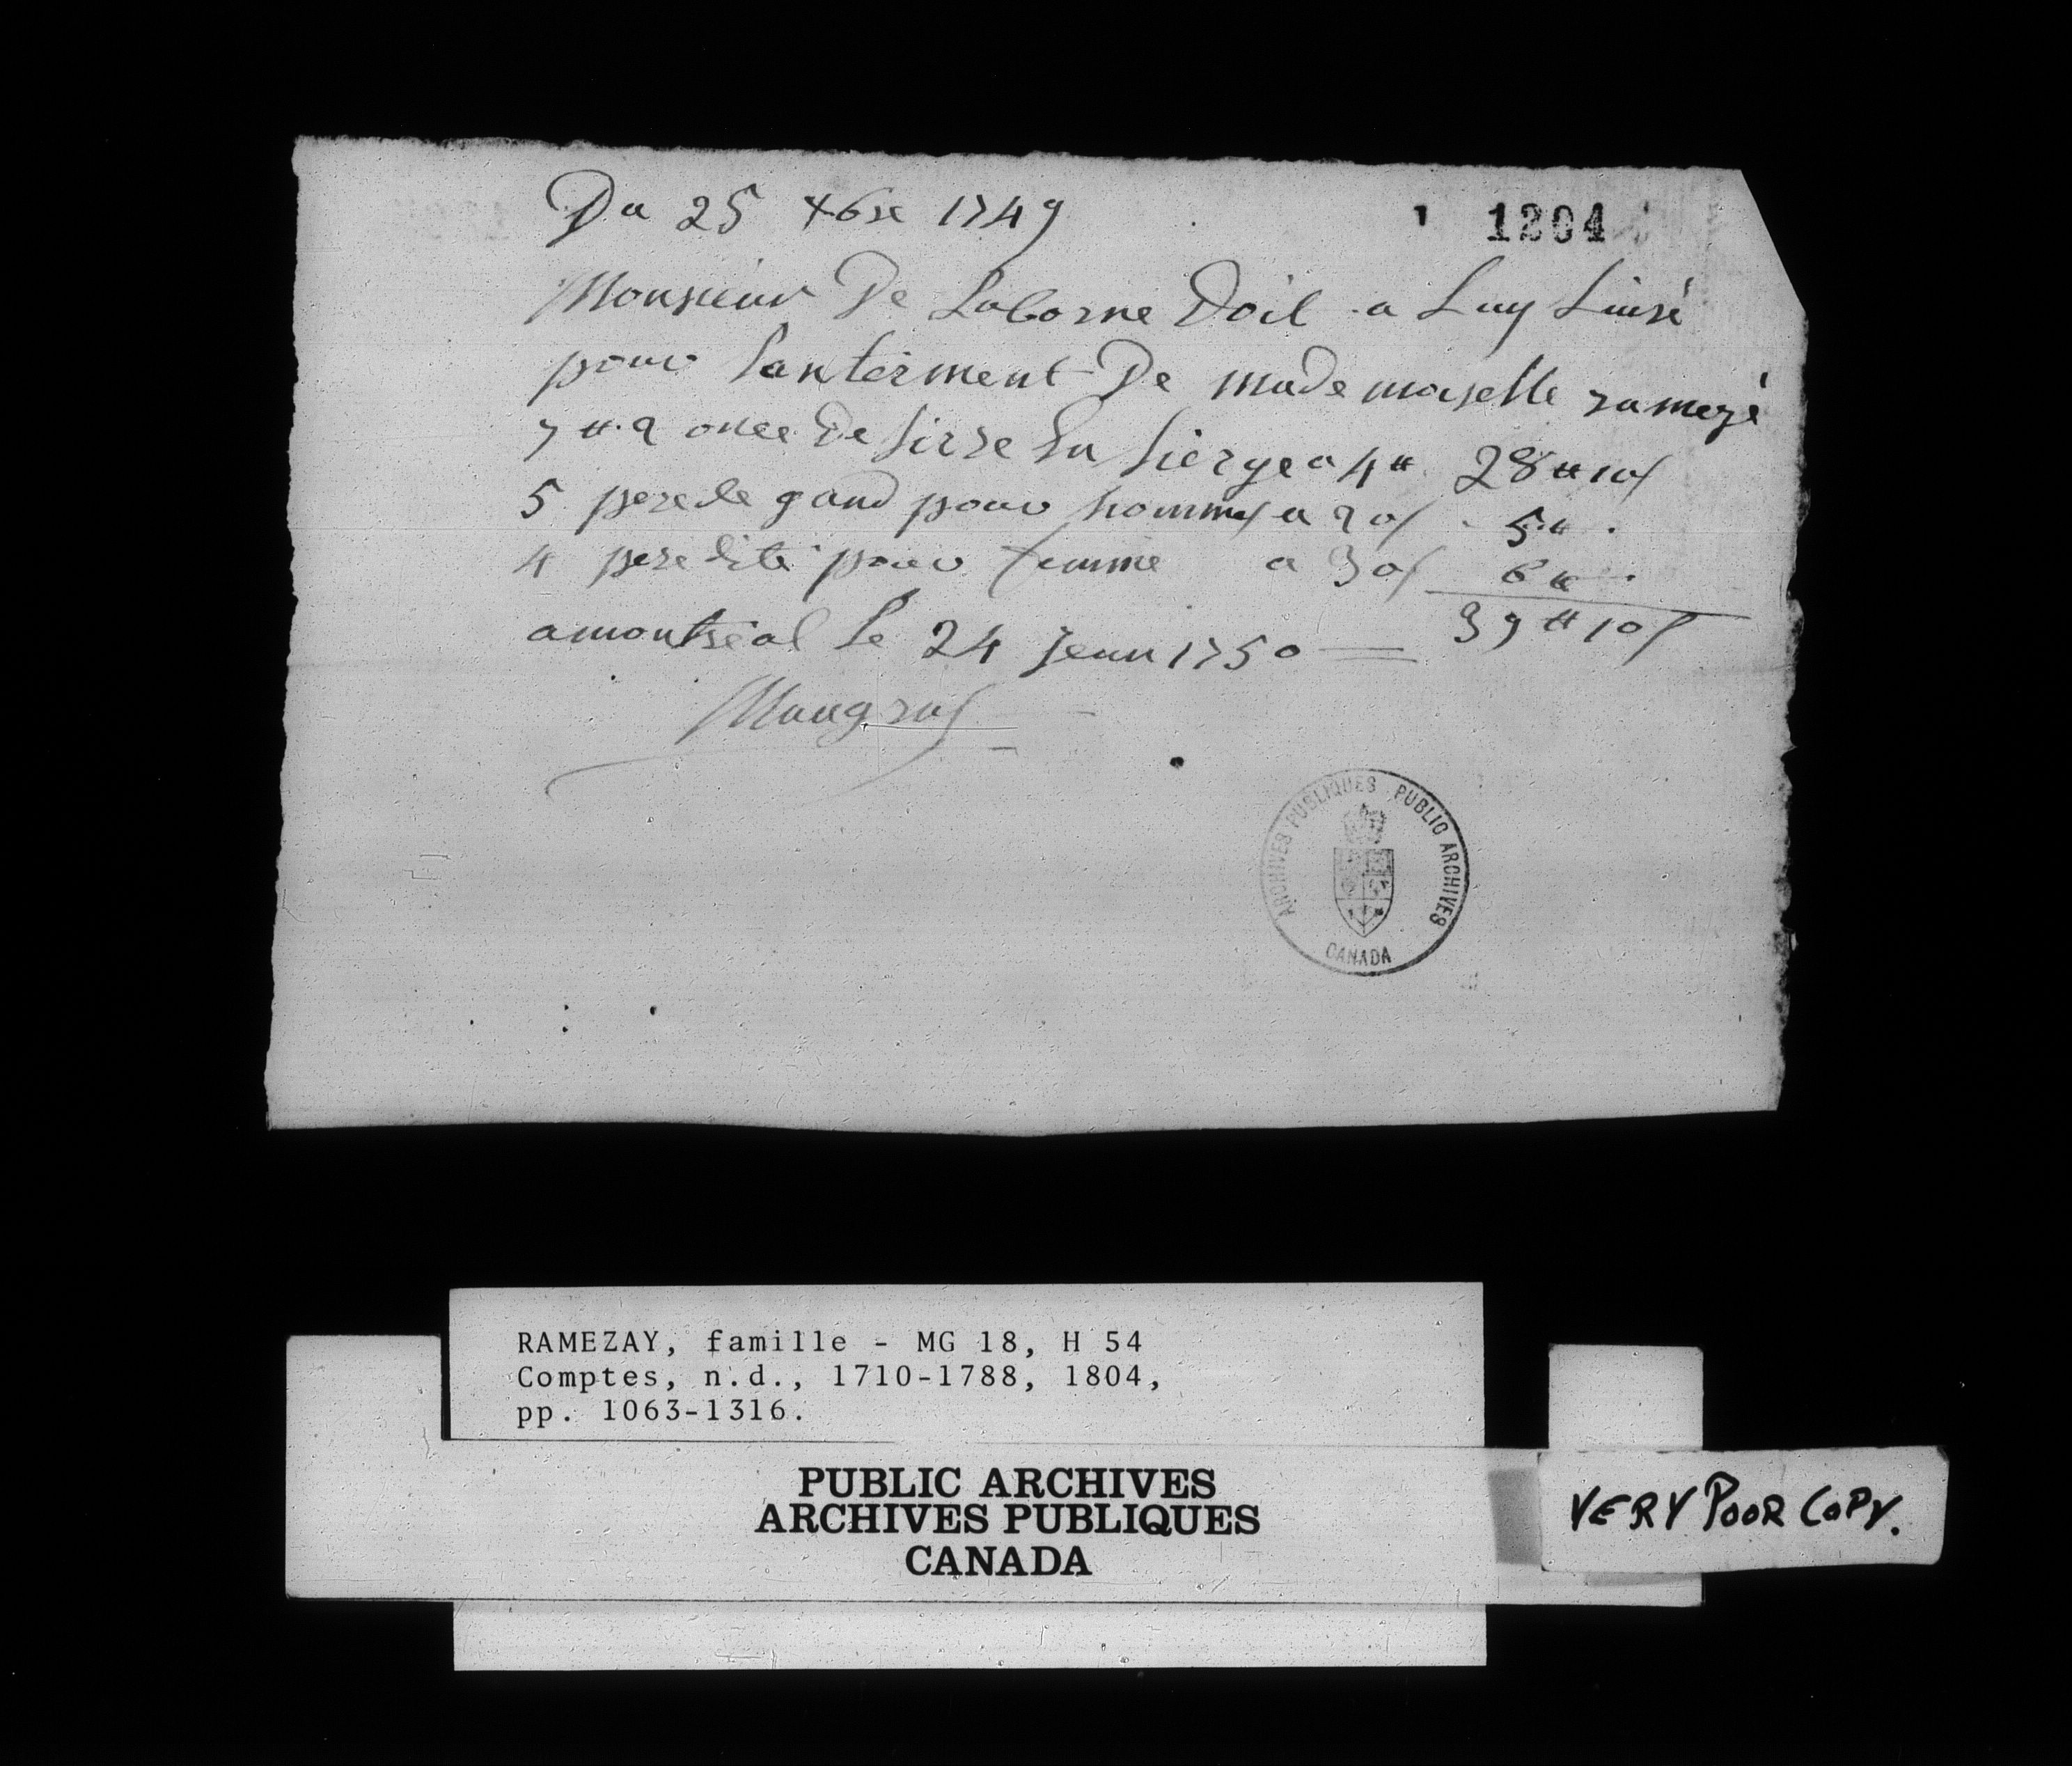 Du 25 xbre 1749
1 1204
Monsieur De Lacorne Doit a Luy Livré
pour Lanterment De mademoiselle ramezé
7 ₶ 2 once De sirre En sierge a 4 ₶ 28 ₶ 10 s
5 pere de gand pour hommes a 20 s 5 ₶
4 pere dite pour femme a 30 s 6 ₶
39 ₶ 10 s
a montreal Le 24 Jenv 1750
Maugras
ARCHIVES PUBLIQUES PUBLIC ARCHIVES
CANADA
RAMEZAY, famille - MG 18, H 54
Comptes, n.d., 1710-1788, 1804,
pp. 1063-1316.
PUBLIC ARCHIVES
ARCHIVES PUBLIQUES
CANADA
VERY POOR COPY.